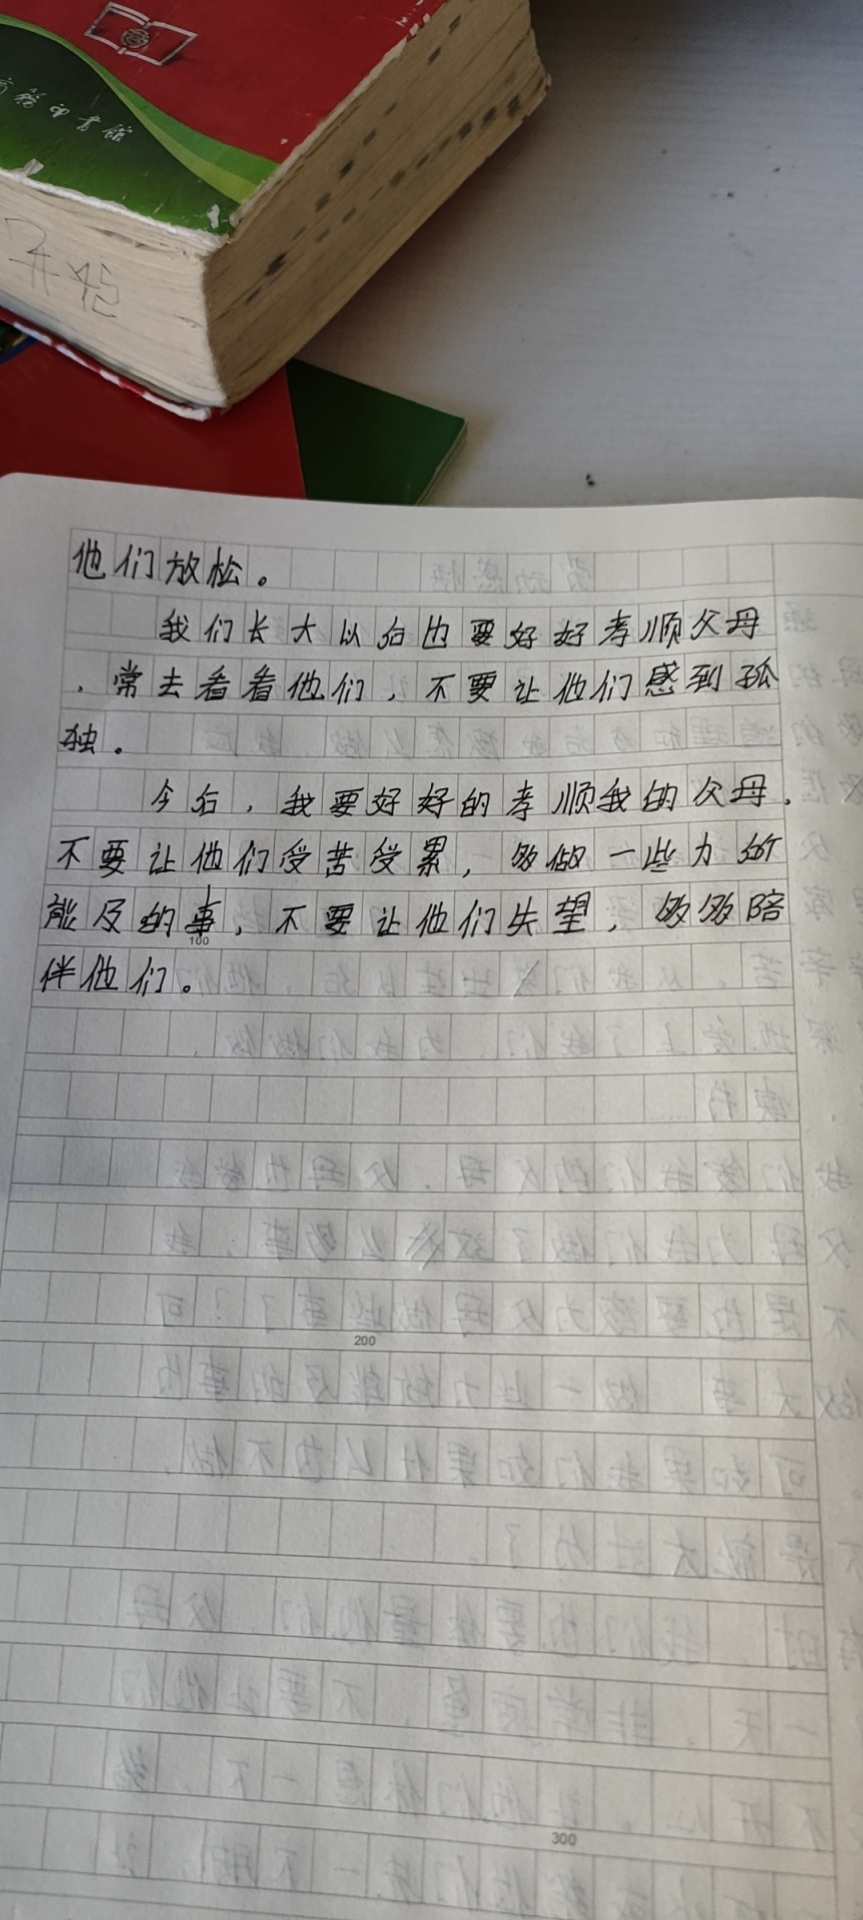 商务印书馆
他们放松。
我们长大以后也要好好孝顺父母
，常去看看他们，不要让他们感到孤
独。
今后，我要好好的孝顺我的父母，
不要让他们受苦受累，多做一些力所
能及的事，不要让他们失望，多多陪
伴他们。
100
200
300